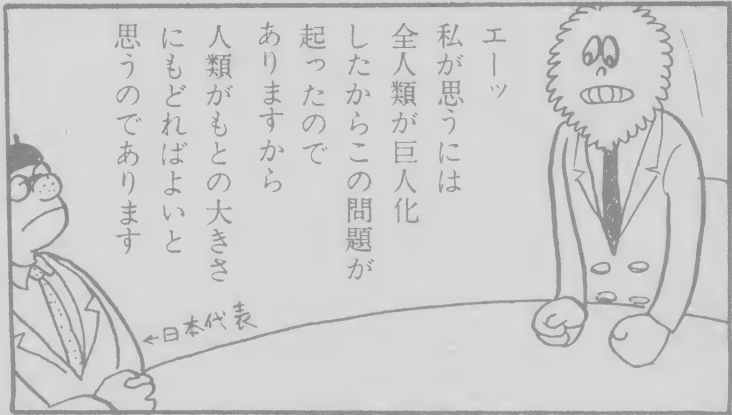 エーッ
私が思うには
全人類が巨人化
したからこの問題が
起ったので
ありますから
人類がもとの大きさ
にもどればよいと
思うのであります
←日本代表